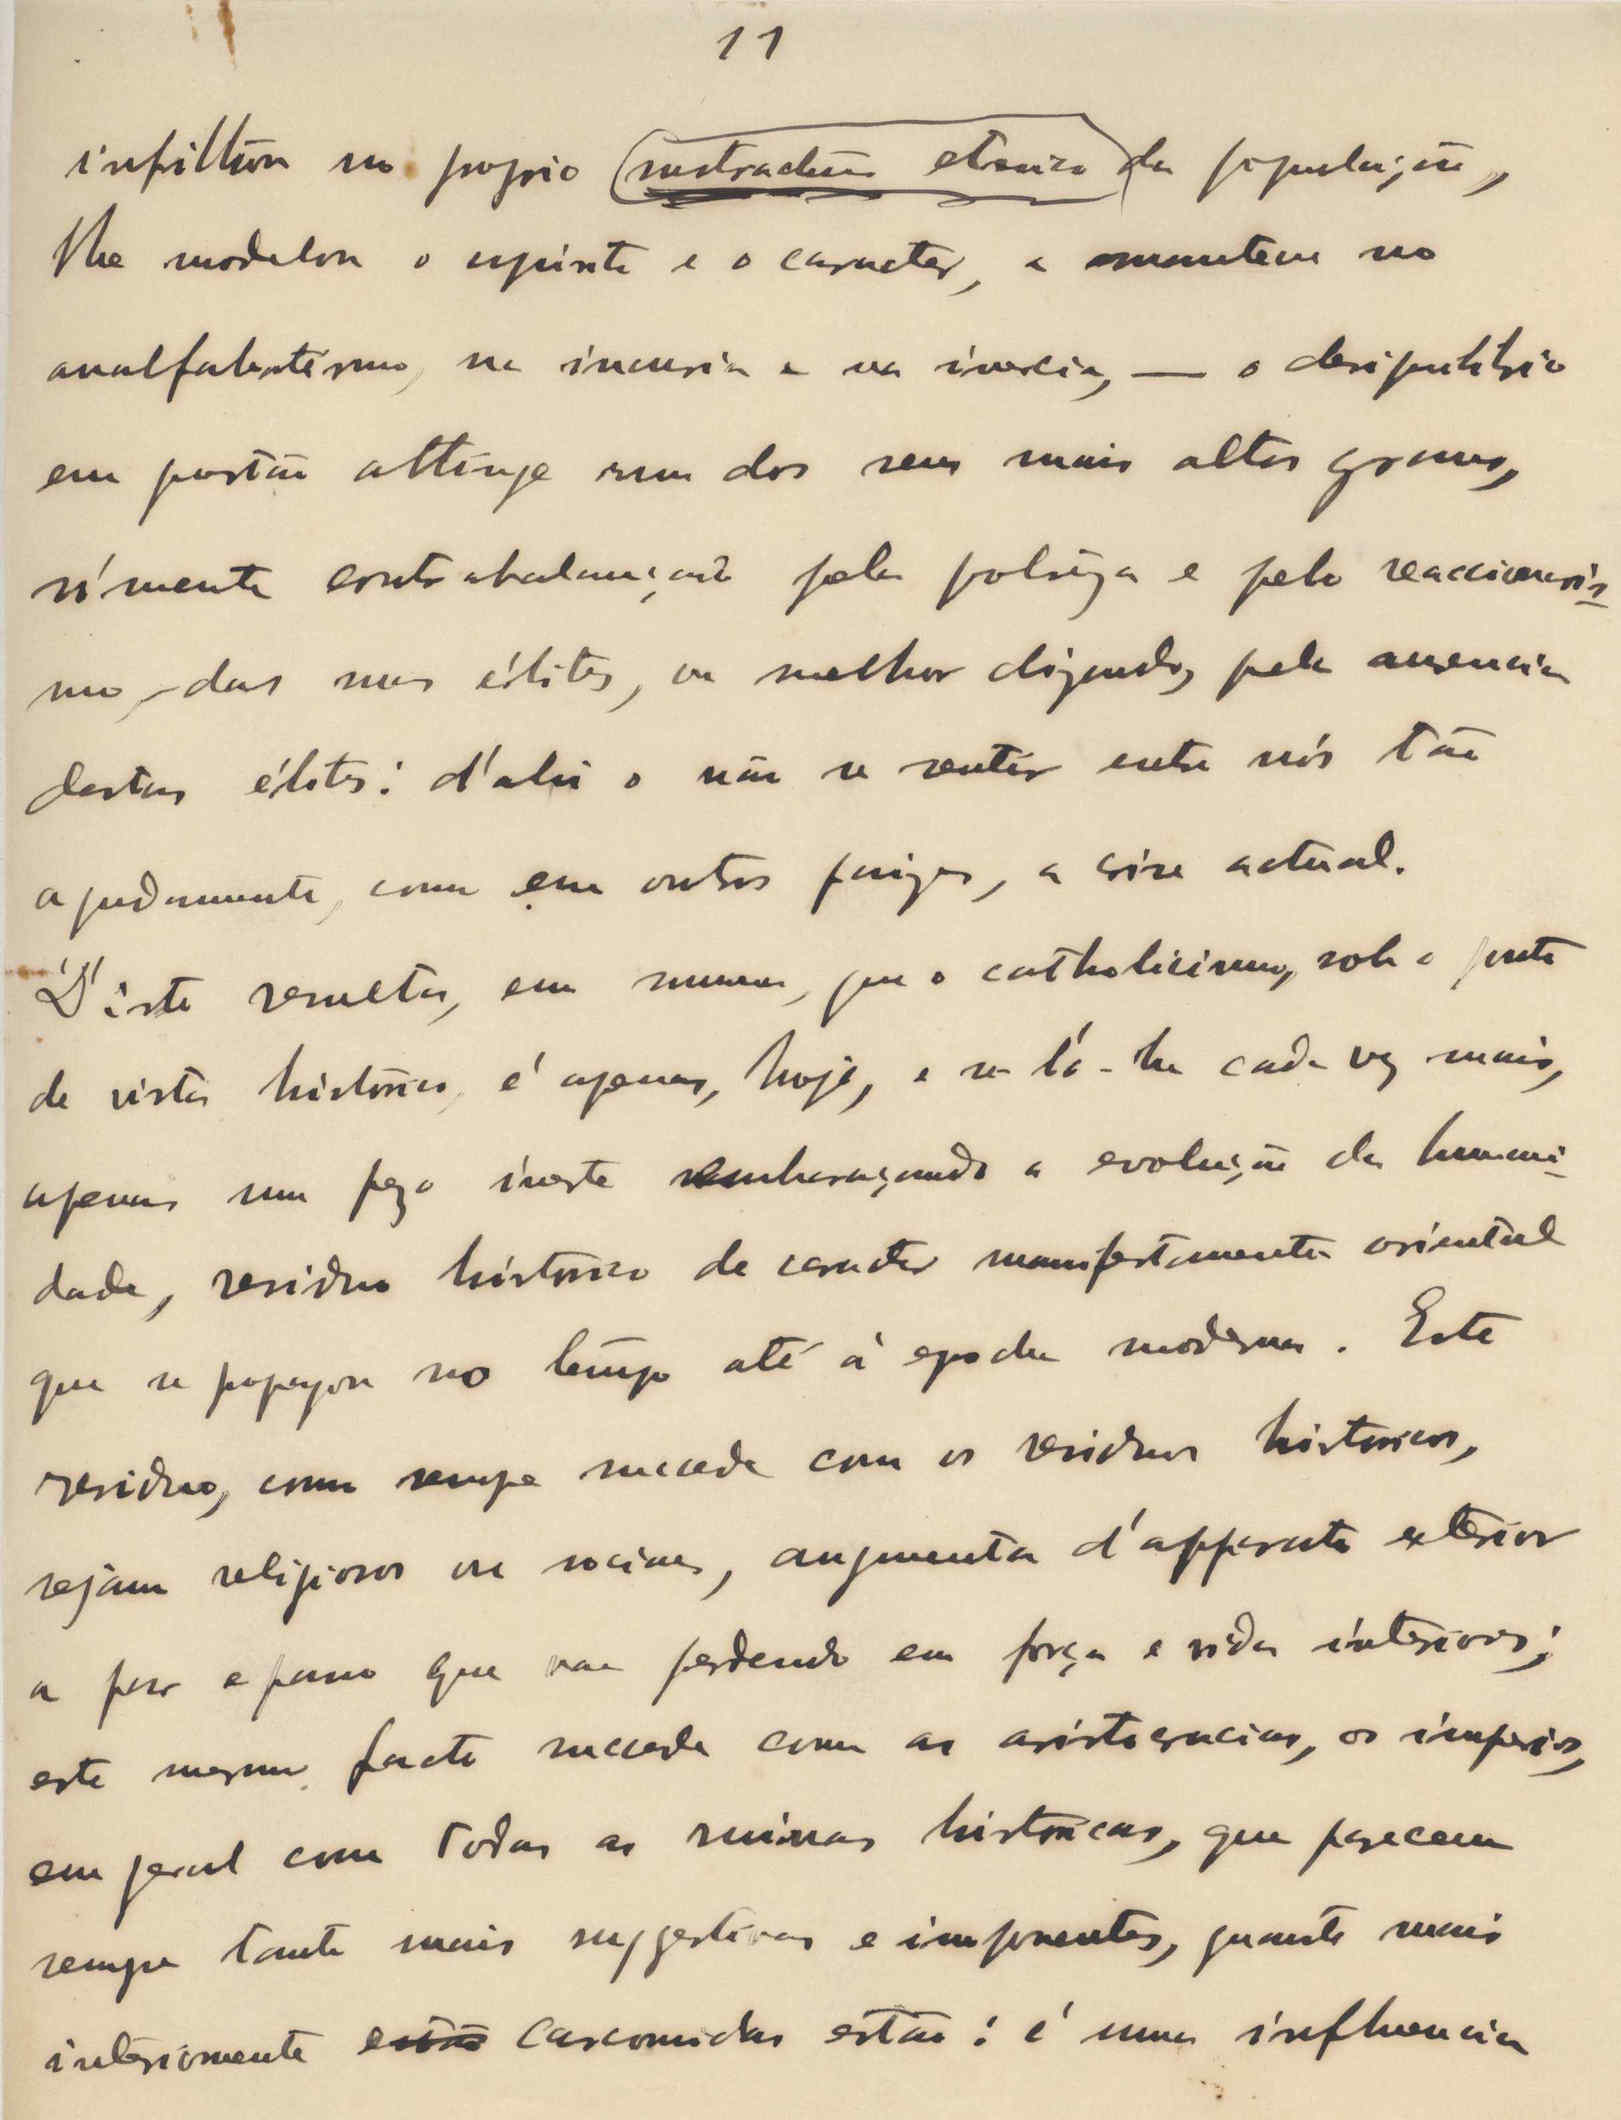 11
infiltrou no proprio substractum etnico da população,
lhe modelou o espirito e o caracter, e a mantem no
analfabetismo, na incuria e na inercia, — o desiquilibrio
em questão attinge um dos seus mais altos graus,
sómente contrabalançado pela e pelo reaccionaris-
mo das suas élites, ou melhor dizendo, pela ausencia
destas élites: d'ahi o não se sentir entre nós tão
agudamente, como em outros paizes, a crise actual.
D'isto resulta, em summa, que o catholicismo, sob o ponto
de vista historico, é apenas, hoje, e sê-lo-ha cada vez mais,
apenas um pezo inerte embaraçando a evolução da humani-
dade, residuo historico de caracter manifestamente oriental
que se propagou no tempo até á epocha moderna. Este
residuo, como sempre succede com os residuos historicos,
sejam religiosos ou sociaes, augmenta d'apparato exterior
a passo e passo que vae perdendo em força e vida interiores;
este mesmo facto succede com as aristocracias, os imperios,
em geral com todas as ruinas historicas, que parecem
sempre tanto mais suggestivas e imponentes, quanto mais
interiormente estão carcomidas estão: é uma influencia